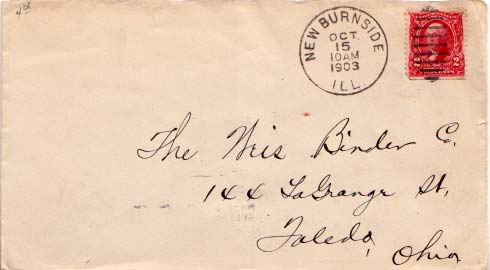 4th
NEW BURNSIDE
OCT.
15
10AM
1903
ILL.
The Wris Binder Co.
144 LaGrange St,
Toledo,
Ohio